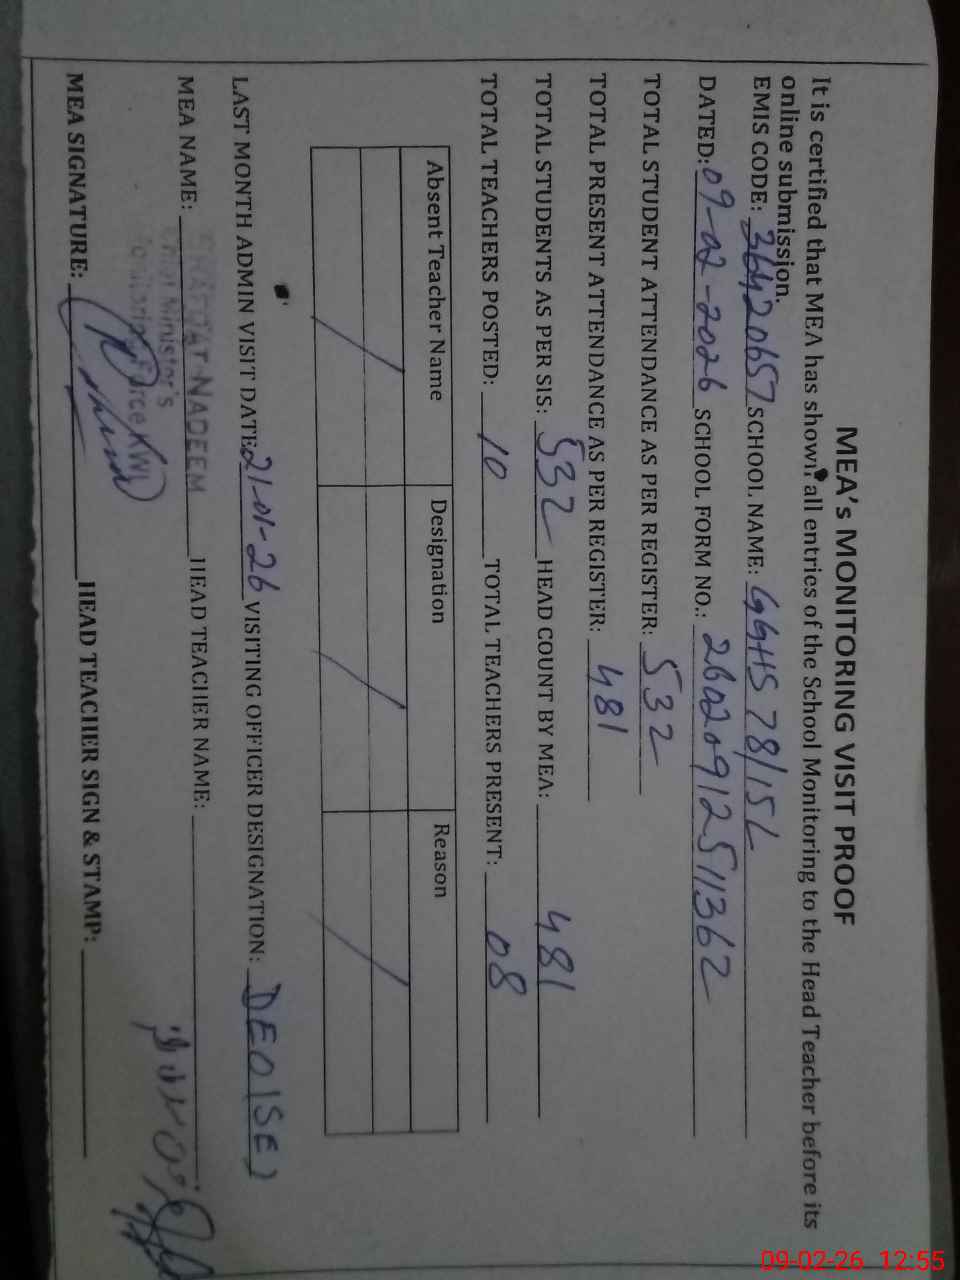 MEA's MONITORING VISIT PROOF
It is certified that MEA has shown all entries of the School Monitoring to the Head Teacher before its
online submission.
EMIS CODE: 36420657 SCHOOL NAME: GGHS 78/15L
DATED: 09-02-2026 SCHOOL FORM NO.: 26020912511362
TOTAL STUDENT ATTENDANCE AS PER REGISTER: 532
TOTAL PRESENT ATTENDANCE AS PER REGISTER: 481
TOTAL STUDENTS AS PER SIS: 532 HEAD COUNT BY MEA: 481
TOTAL TEACHERS POSTED: 10 TOTAL TEACHERS PRESENT: 08
Absent Teacher Name Designation Reason
LAST MONTH ADMIN VISIT DATE 21-01-26 VISITING OFFICER DESIGNATION: DEO(SE)
MEA NAME: NADEEM HEAD TEACHER NAME:
Minister's
Force KWL
MEA SIGNATURE: HEAD TEACHER SIGN & STAMP:
09-02-26 12:55